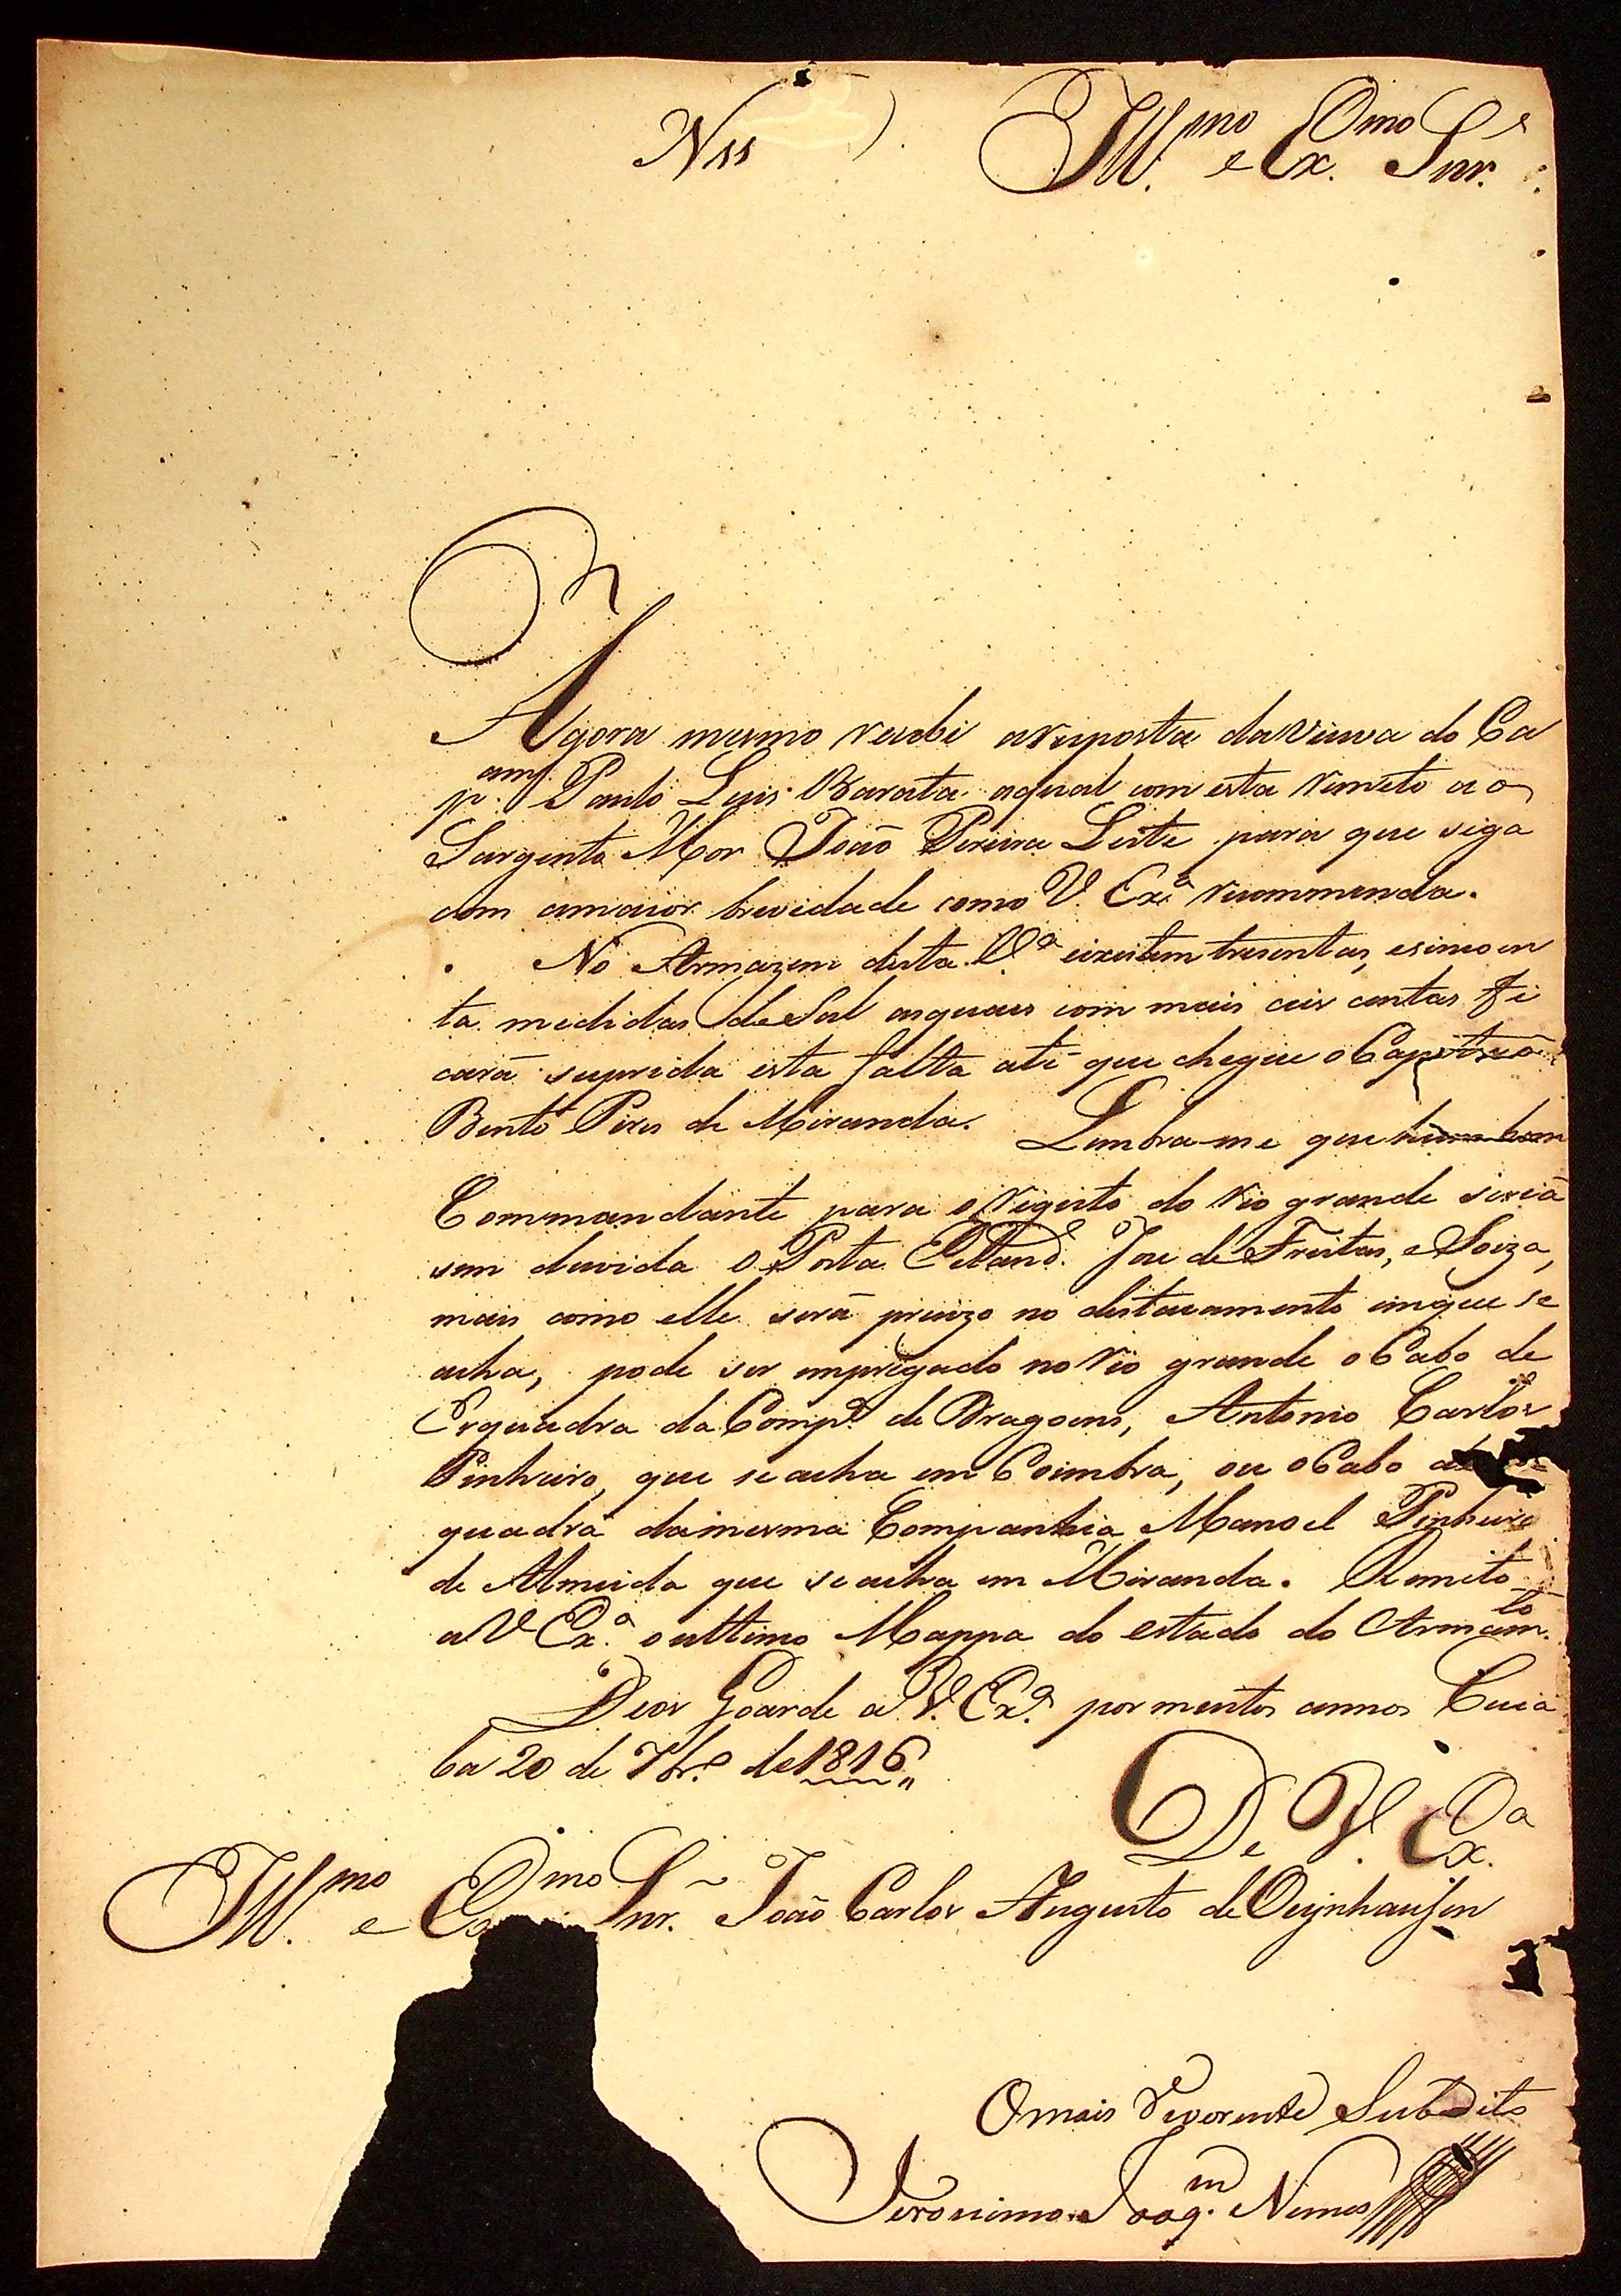 N 11
Ill.mo e Ex.mo Snr.
Agora mesmo recebi aresposta daviuva do Ca
p.am Paulo Luis Barata aqual com esta remeto ao
Sargento Mor João Pereira Leite para que siga
com amaior brevidade como V. Ex.a recommenda.
No Armazem desta V.a eixestem tresentas, esincoen
ta medidas deSal asquais com mais ceis centas fi
cará suprida esta falta até que chegue oCapitaõ
Bento Pires de Miranda. Lembra-me que hum bom
Commandante para o registo do rio grande seriá
sem duvida o Porta Estand.e Joze de Freitas, e Soiza,
mais como elle será precizo no destacamento emque se
acha, pode ser empregado no rio grande oCabo de
Esquadra daComp.a de Dragoens, Antonio Carlos
Pinheiro, que seacha em Coimbra, ou oCabo
quadra damesma Companhia Manoel Pinheiro
de Almeida que seacha em Miranda. Remeto
a V Ex.a oulttimo Mappa do estado do Armam.to
Deos Goarde a V. Ex.a pormentos annos Cuia
ba 20 de 7br.o de1816
De V. Ex.a
Ill.mo e Ex.mo Snr. João Carlos Augusto deOeynhausen
Omais Reverente Subdito
Jeronimo Joaq.m Nunes